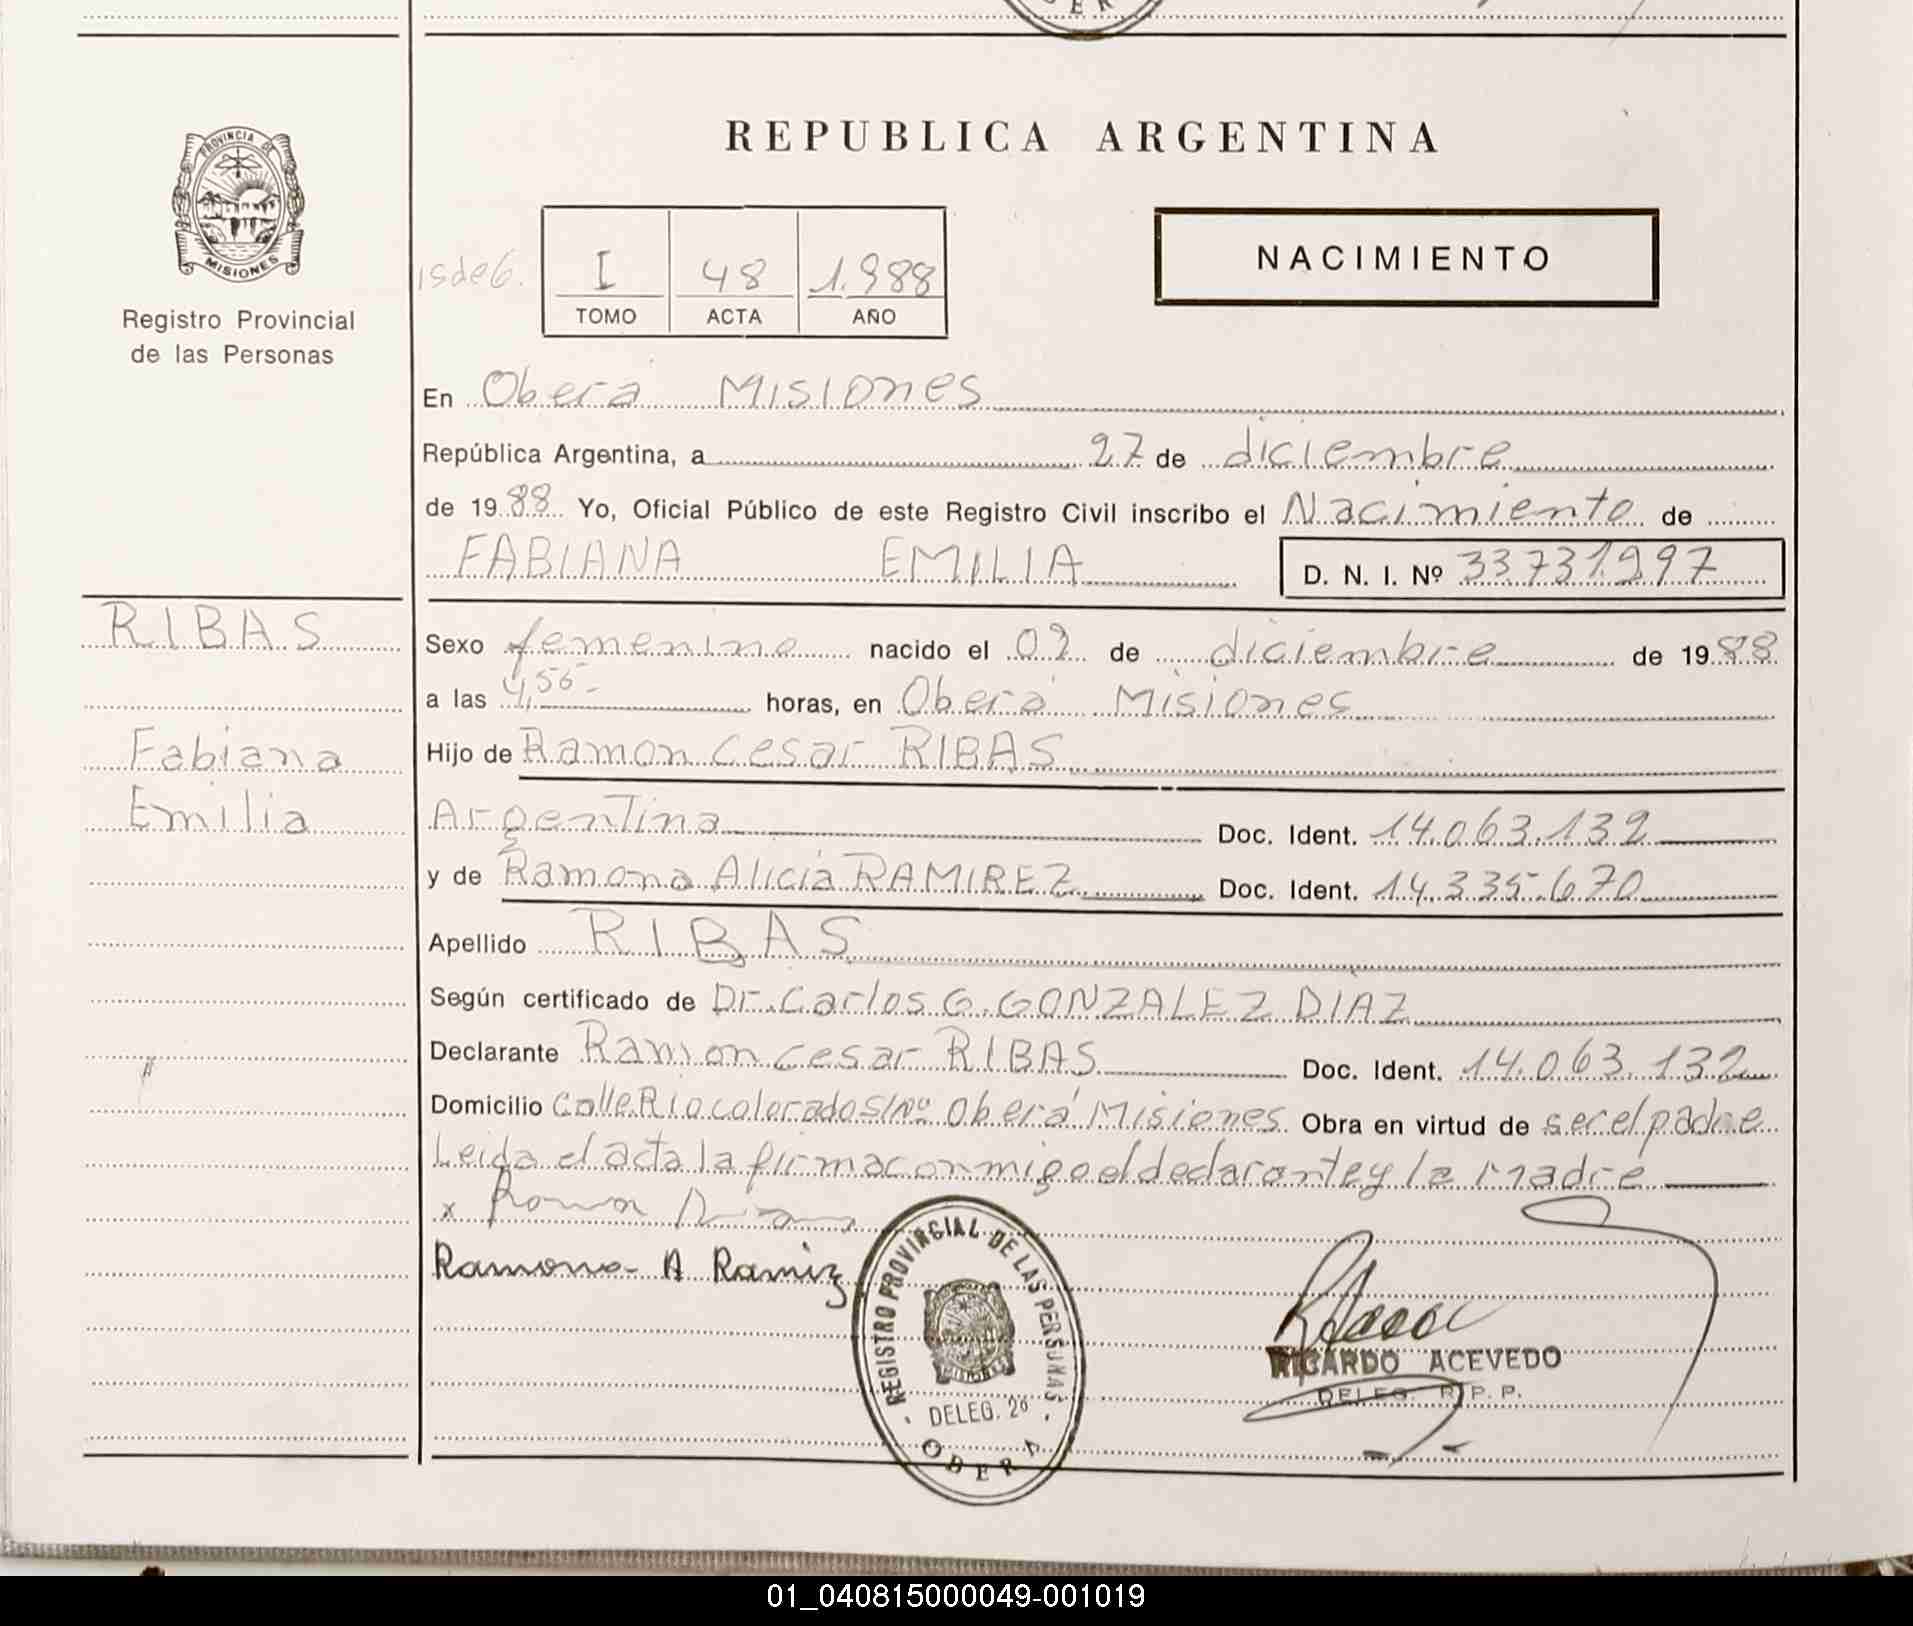 BER
REPUBLICA ARGENTINA
PROVINCIA DE
MISIONES
Registro Provincial
de las Personas
I 48 1.988
TOMO ACTA AÑO
NACIMIENTO
En Oberá Misiones
República Argentina, a 27 de diciembre
de 1988 Yo, Oficial Público de este Registro Civil inscribo el Nacimiento de
FABIANA EMILIA D. N. I. Nº 33731997
RIBAS
Fabiana
Emilia
Sexo femenino nacido el 02 de diciembre de 1988
a las 4,55- horas, en Oberá Misiones
Hijo de Ramon Cesar RIBAS
Argentina Doc. Ident. 14.063.132
y de Ramona Alicia RAMIREZ Doc. Ident. 14.335.670
Apellido RIBAS
Según certificado de Dr. Carlos G. GONZALEZ DIAZ
Declarante Ramon Cesar RIBAS Doc. Ident. 14.063.132
Domicilio Calle Rio colorado S/Nº Oberá Misiones Obra en virtud de ser el padre
Leida el acta la firma conmigo el declarante y la Madre
x
Ramona A Ramirz
REGISTRO PROVINCIAL DE LAS PERSONAS
MISIONES
DELEG. 2ª
OBERA
RICARDO ACEVEDO
DELEG. R. P. P.
01_040815000049-001019